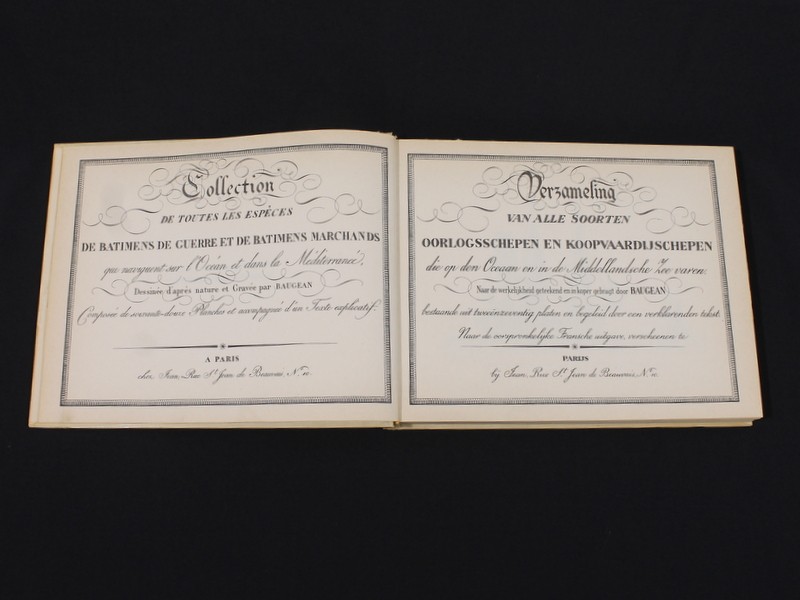 Collection
DE TOUTES LES ESPÈCES
DE BATIMENS DE GUERRE ET DE BATIMENS MARCHANDS
qui naviguent sur l'Océan et dans la Méditerranée,
Dessinée d'après nature et Gravée par BAUGEAN
Composée de soixante-douze Planches et accompagnée d'un Texte explicatif.
A PARIS
chez Jean, Rue St Jean de Beauvais, No. 10.
Verzameling
VAN ALLE SOORTEN
OORLOGSSCHEPEN EN KOOPVAARDIJSCHEPEN
die op den Oceaan en in de Middellandsche Zee varen
Naar de werkelijkheid geteekend en in koper gebragt door BAUGEAN
bestaande uit tweeënzeventig platen en begeleid door een verklarenden tekst.
Naar de oorspronkelijke Fransche uitgave, verschenen te
PARIJS
bij Jean, Rue St Jean de Beauvais, No. 10.